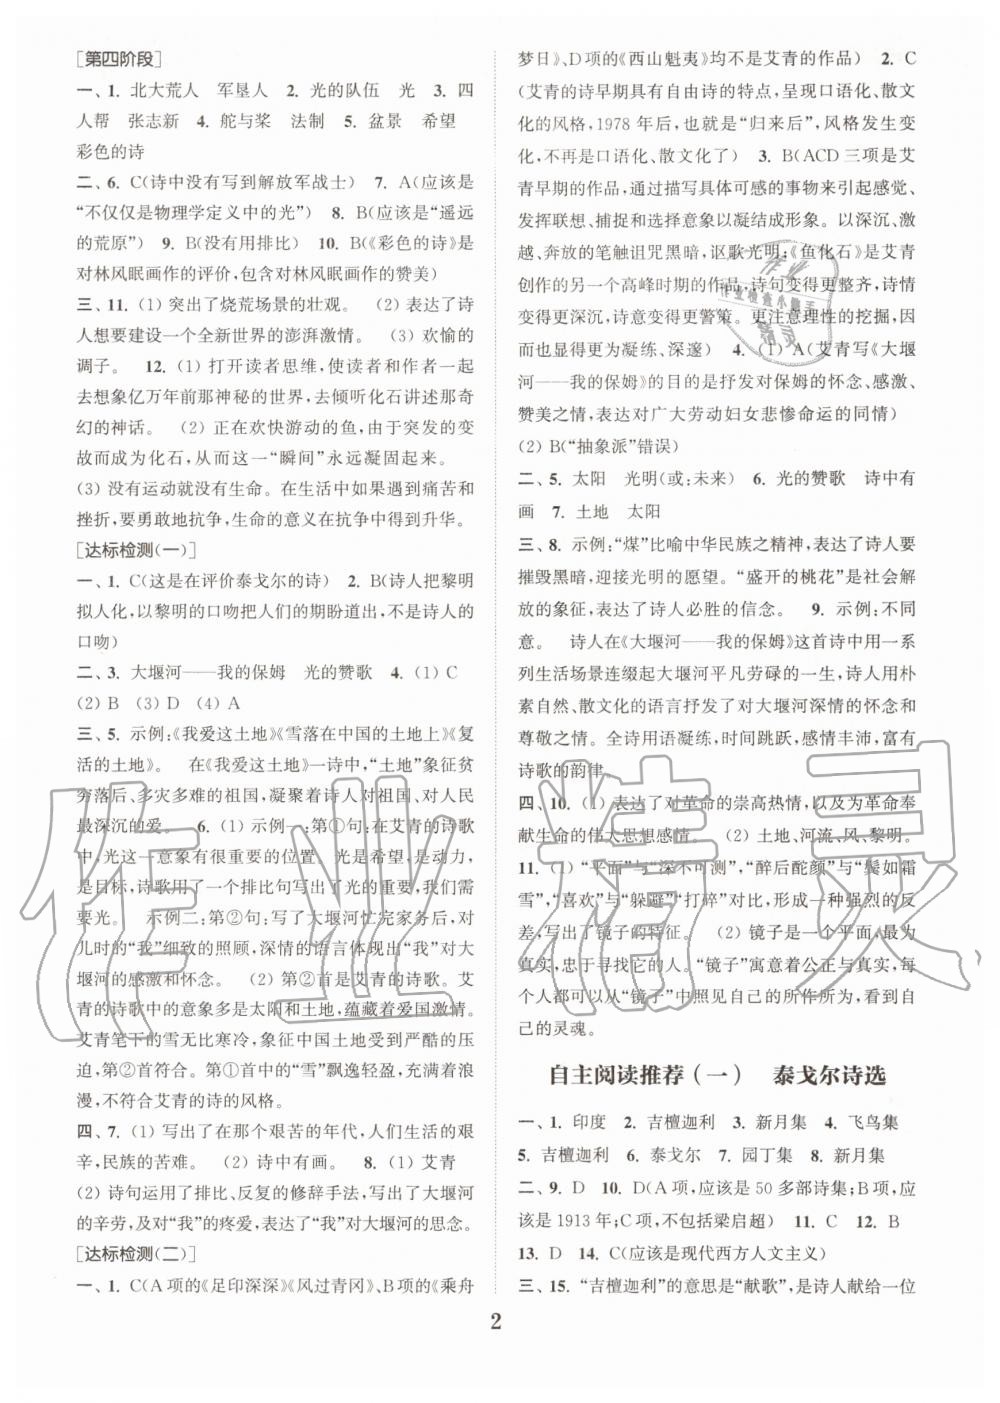 [第四阶段]
一、1. 北大荒人　军垦人　2. 光的队伍　光　3. 四
人帮　张志新　4. 舵与桨　法制　5. 盆景　希望
彩色的诗
二、6. C(诗中没有写到解放军战士)　7. A(应该是
“不仅仅是物理学定义中的光”)　8. B(应该是“遥远
的荒原”)　9. B(没有用排比)　10. B(《彩色的诗》是
对林风眠画作的评价,包含对林风眠画作的赞美)
三、11. (1) 突出了烧荒场景的壮观。　(2) 表达了诗
人想要建设一个全新世界的澎湃激情。　(3) 欢愉的
调子。　12. (1) 打开读者思维,使读者和作者一起
去想象亿万年前那神秘的世界,去倾听化石讲述那奇
幻的神话。　(2) 正在欢快游动的鱼,由于突发的变
故而成为化石,从而这一“瞬间”永远凝固起来。
(3) 没有运动就没有生命。在生活中如果遇到痛苦和
挫折,要勇敢地抗争,生命的意义在抗争中得到升华。
[达标检测(一)]
一、1. C(这是在评价泰戈尔的诗)　2. B(诗人把黎明
拟人化,以黎明的口吻把人们的期盼道出,不是诗人的
口吻)
二、3. 大堰河——我的保姆　光的赞歌　4. (1) C
(2) B　(3) D　(4) A
三、5. 示例:《我爱这土地》《雪落在中国的土地上》《复
活的土地》。　在《我爱这土地》一诗中,“土地”象征贫
穷落后、多灾多难的祖国,凝聚着诗人对祖国、对人民
最深沉的爱。　6. (1) 示例一:第①句:在艾青的诗歌
中,光这一意象有很重要的位置。光是希望,是动力,
是目标,诗歌用了一个排比句写出了光的重要,我们需
要光。　示例二:第②句:写了大堰河忙完家务后,对
儿时的“我”细致的照顾,深情的语言体现出“我”对大
堰河的感激和怀念。　(2) 第②首是艾青的诗歌。艾
青的诗歌中的意象多是太阳和土地,蕴藏着爱国激情。
艾青笔下的雪无比寒冷,象征中国土地受到严酷的压
迫,第②首符合。第①首中的“雪”飘逸轻盈,充满浪漫
主义,不符合艾青的诗的风格。
四、7. (1) 写出了在那个艰苦的年代,人们生活的艰
辛,民族的苦难。　(2) 诗中有画。　8. (1) 艾青
(2) 诗句运用了排比、反复的修辞手法,写出了大堰河
的辛劳,及对“我”的疼爱,表达了“我”对大堰河的思念。
[达标检测(二)]
一、1. C(A 项的《足印深深》《风过青冈》、B项的《乘舟
梦日》、D 项的《西山魁夷》均不是艾青的作品)　2. C
(艾青的诗早期具有自由诗的特点,呈现口语化、散文
化的风格,1978 年后,也就是“归来后”,风格发生变
化,不再是口语化、散文化了)　3. B(ACD 三项是艾
青早期的作品,通过描写具体可感的事物来引起感觉、
发挥联想、捕捉和选择意象以凝结成形象。以深沉、激
越、奔放的笔触诅咒黑暗,讴歌光明;《鱼化石》是艾青
创作的另一个高峰时期的作品,诗句变得更整齐,诗情
变得更深沉,诗意变得更警策。更注意理性的挖掘,因
而也显得更为凝练、深邃)　4. (1) A(艾青写《大堰
河——我的保姆》的目的是抒发对保姆的怀念、感激、
赞美之情,表达对广大劳动妇女悲惨命运的同情)
(2) B(“抽象派”错误)
二、5. 太阳　光明(或:未来)　6. 光的赞歌　诗中有
画　7. 土地　太阳
三、8. 示例:“煤”比喻中华民族之精神,表达了诗人要
摧毁黑暗,迎接光明的愿望。“盛开的桃花”是社会解
放的象征,表达了诗人必胜的信念。　9. 示例:不同
意。　诗人在《大堰河——我的保姆》这首诗中用一系
列生活场景连缀起大堰河平凡劳碌的一生,诗人用朴
素自然、散文化的语言抒发了对大堰河深情的怀念和
尊敬之情。全诗用语凝练,时间跳跃,感情丰沛,富有
诗歌的韵律。
四、10. (1) 表达了对革命的崇高热情,以及为革命奉
献生命的伟大思想感情。　(2) 土地、河流、风、黎明。
11. (1) “平面”与“深不可测”,“醉后酡颜”与“鬓如霜
雪”,“喜欢”与“躲避”“打碎”对比,形成一种强烈的反
差,写出了镜子的特征。　(2) 镜子是一个平面,最为
真实,忠于寻找它的人。“镜子”寓意着公正与真实,每
个人都可以从“镜子”中照见自己的所作所为,看到自
己的灵魂。
自主阅读推荐(一)　泰戈尔诗选
一、1. 印度　2. 吉檀迦利　3. 新月集　4. 飞鸟集
5. 吉檀迦利　6. 泰戈尔　7. 园丁集　8. 新月集
二、9. D　10. D(A 项,应该是 50 多部诗集;B 项,应该
是 1913 年;C 项,不包括梁启超)　11. C　12. B
13. D　14. C(应该是现代西方人文主义)
三、15. “吉檀迦利”的意思是“献歌”,是诗人献给一位
2
作业精灵
作业检查小助手